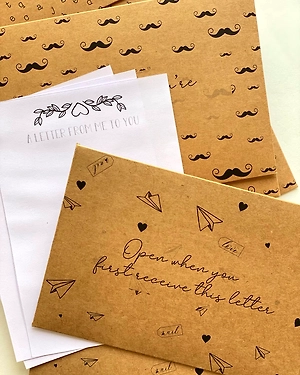 you're
A LETTER FROM ME TO YOU
love
Open when you
first receive this letter
mail